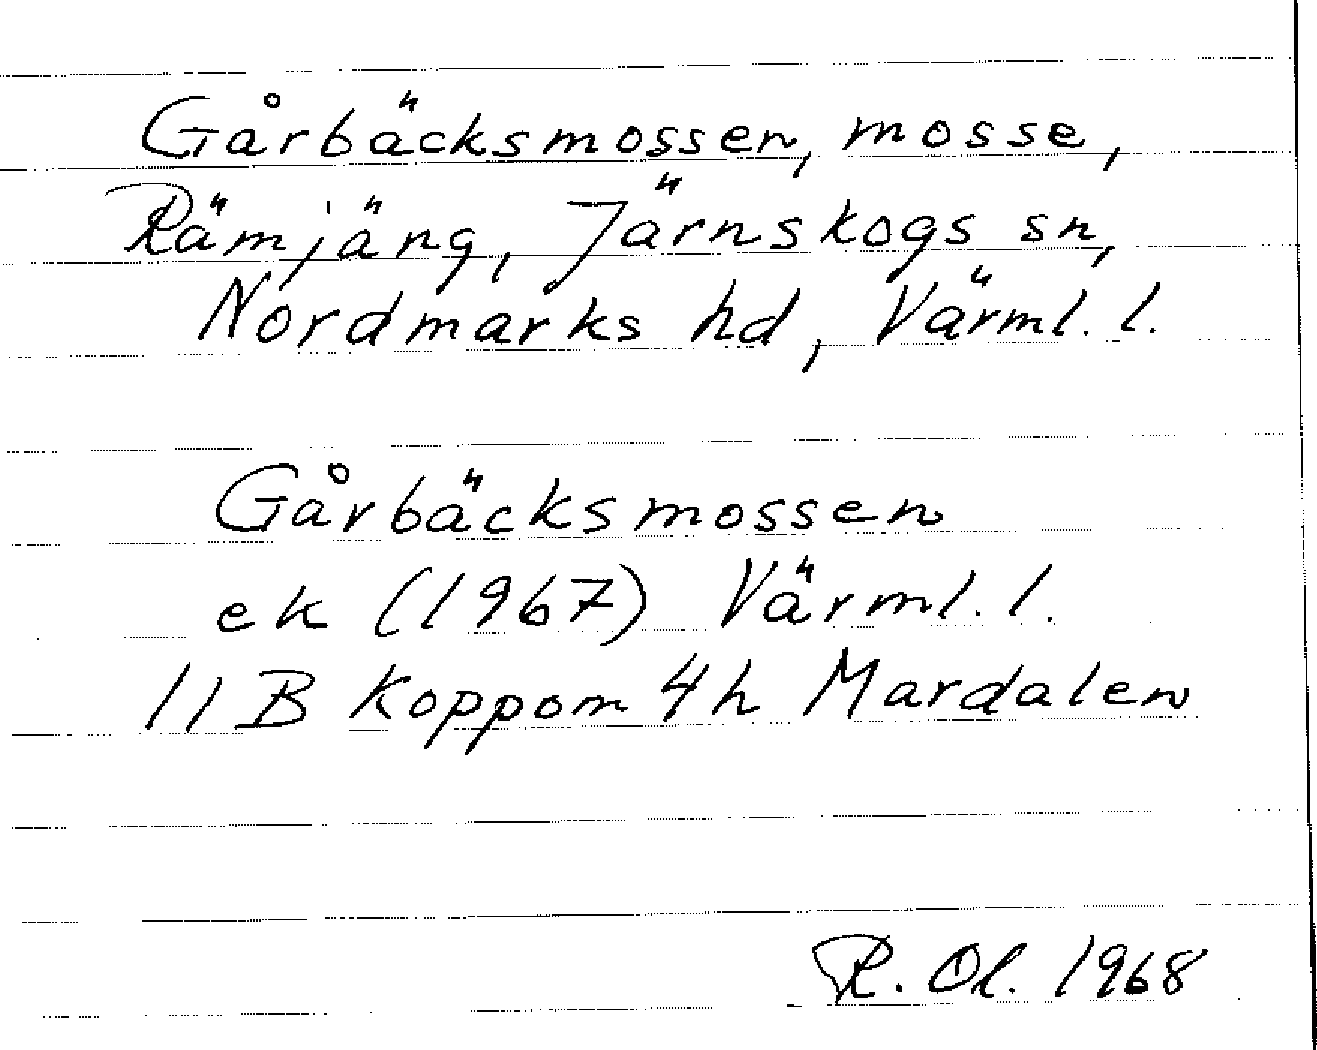 Gårbäcksmossen, mosse,
Rämjäng, Järnskogs sn,
Nordmarks hd, Värml. l.
Gårbäcksmossen
ek (1967) Värml. l.
11 B Koppom 4h Mardalen
R. Ol. 1968